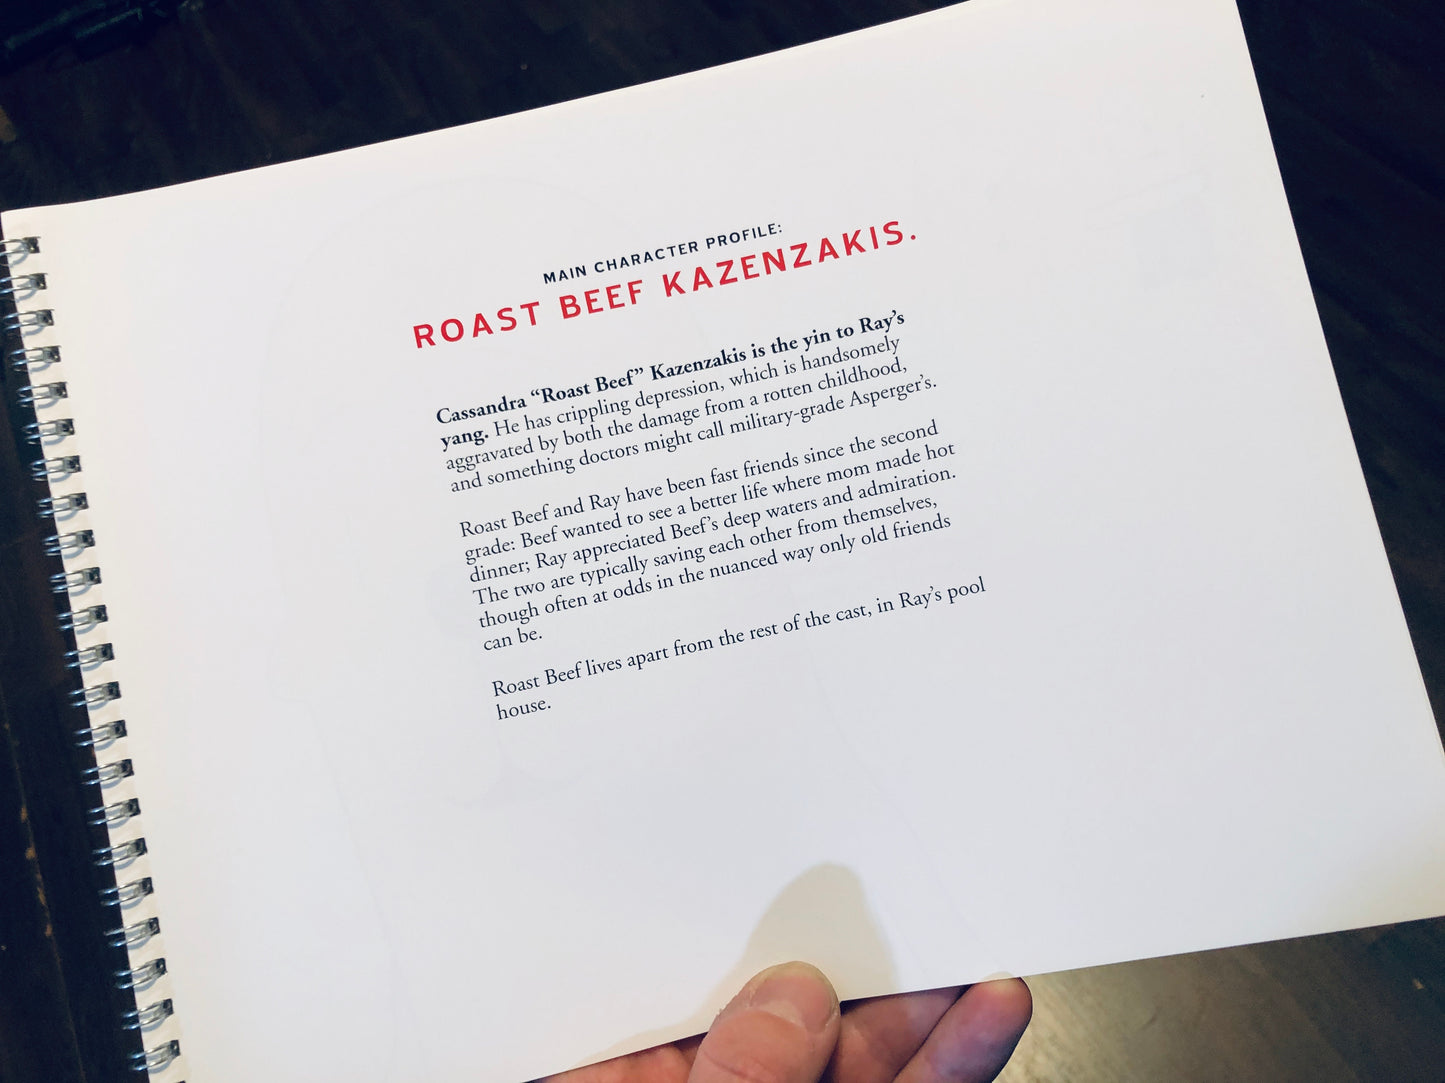 MAIN CHARACTER PROFILE:
ROAST BEEF KAZENZAKIS.
Cassandra “Roast Beef” Kazenzakis is the yin to Ray’s
yang. He has crippling depression, which is handsomely
aggravated by both the damage from a rotten childhood,
and something doctors might call military-grade Asperger’s.
Roast Beef and Ray have been fast friends since the second
grade: Beef wanted to see a better life where mom made hot
dinner; Ray appreciated Beef’s deep waters and admiration.
The two are typically saving each other from themselves,
though often at odds in the nuanced way only old friends
can be.
Roast Beef lives apart from the rest of the cast, in Ray’s pool
house.